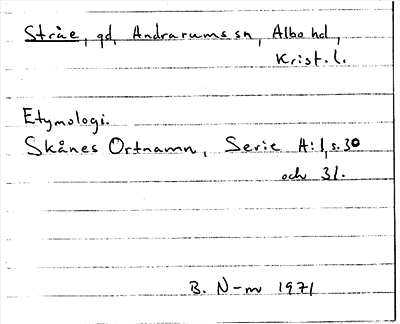 Stråe, gd, Andrarums sn, Albo hd,
Krist. l.
Etymologi.
Skånes Ortnamn, Serie A:1, s. 30
och 31.
B. N-m 1971